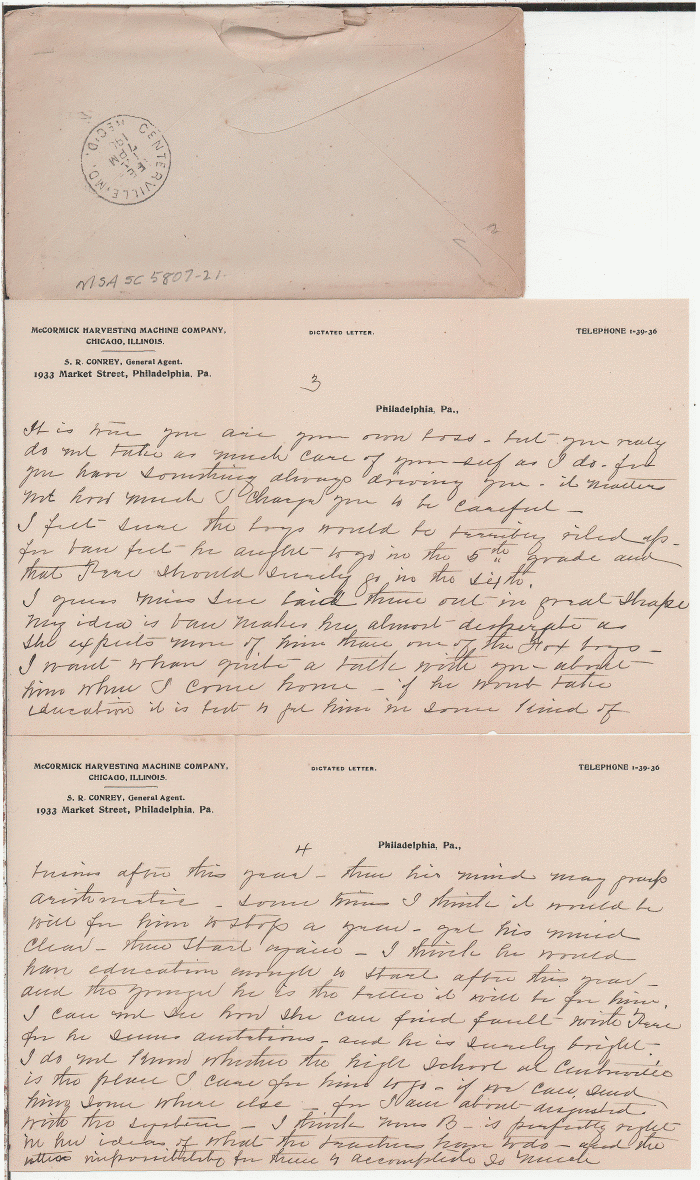 CENTERVILLE, MD.
REC'D.
7 PM
MSA SC 5807-21.
McCORMICK HARVESTING MACHINE COMPANY,
CHICAGO, ILLINOIS.
S. R. CONREY, General Agent.
1933 Market Street, Philadelphia, Pa.
DICTATED LETTER.
TELEPHONE 1-39-36
3
Philadelphia, Pa.,
It is true you are your own boss - but you really
do not take as much care of your self as I do - for
you have something always driving you - it matters
not how much I charge you to be careful -
I felt sure the boys would be terribly riled up -
for van felt he aught to go in the 5th grade and
that Rere should surely go in the sixth.
I guess Miss Sue laid them out in great shape
My idea is van makes her almost desperate as
she expects more of him than one of the Fox boys -
I want to have quite a talk with you - about
him when I come home - if he wont take
education it is best to get him in some kind of
McCORMICK HARVESTING MACHINE COMPANY,
CHICAGO, ILLINOIS.
S. R. CONREY, General Agent.
1933 Market Street, Philadelphia, Pa.
DICTATED LETTER.
TELEPHONE 1-39-36
4
Philadelphia, Pa.,
business after this year - then his mind may grasp
arithmetic - some times I think it would be
well for him to stop a year - get his mind
clear - then start again - I think he would
have education enough to start after this year -
and the younger he is the better it will be for him.
I can not see how she can find fault with Rere
for he seems ambitious - and he is surely bright -
I do not know whether the high school at Centreville
is the place I care for him to go - if we can send
him some where else - for I am about disgusted
with the system - I think Miss B - is perfectly right
in her ideas of what the teachers have to do - and the
impossibility for them to accomplish so much